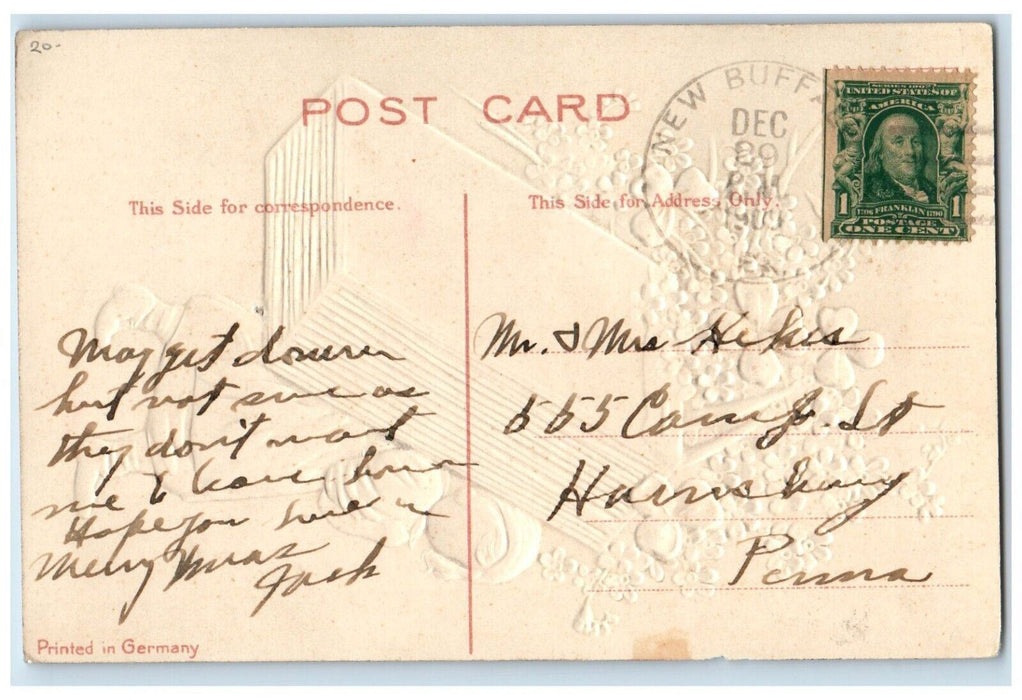 20-
POST CARD
NEW BUFFA
DEC
29
P.M.
1909
PA.
SERIES 1902
UNITED STATES OF
AMERICA
1 1
1706 FRANKLIN 1790
POSTAGE
ONE CENT
This Side for correspondence.
This Side for Address Only.
May get down
but not sure as
they don't want
me to leave home
Hope you have a
Merry Xmas
Jack
Mr. & Mrs Hikes
555 Camp. St
Harrisburg
Penna
Printed in Germany